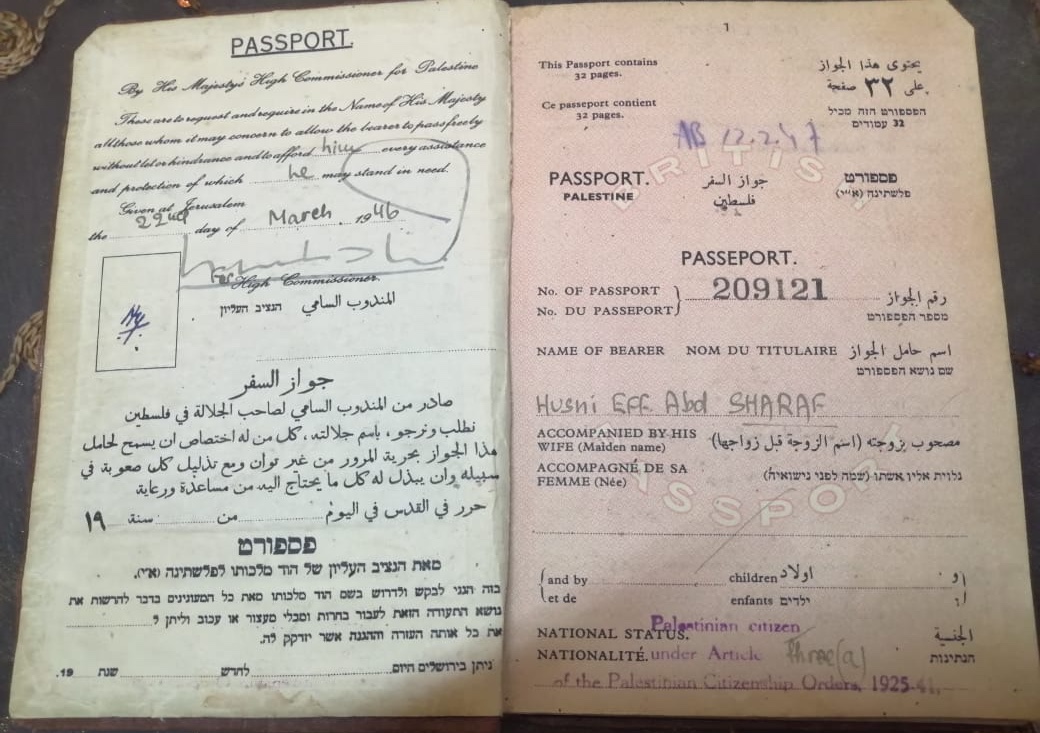 PASSPORT.
By His Majesty's High Commissioner for Palestine
These are to request and require in the Name of His Majesty
all those whom it may concern to allow the bearer to pass freely
without let or hindrance and to afford him every assistance
and protection of which he may stand in need.
Given at Jerusalem
the 22nd day of March 1946
For High Commissioner.
المندوب السامي הנציב העליון
جواز السفر
صادر من المندوب السامي لصاحب الجلالة في فلسطين
نطلب ونرجو، باسم جلالته، كل من له اختصاص ان يسمح لحامل
هذا الجواز بحرية المرور من غير توان ومع تذليل كل صعوبة في
سبيله وان يبذل له كل ما يحتاج اليه من مساعدة ورعاية
حرر في القدس في اليوم من سنة ١٩
פספורט
מאת הנציב העליון של הוד מלכותו לפלשתינה (א״י).
בזה הנני לבקש ולדרוש בשם הוד מלכותו מאת כל המעונינים בדבר להרשות את
נושא התעודה הזאת לעבור בחרות ומבלי מעצור או עכוב וליתן ל
את כל אותה העזרה וההגנה אשר יזדקק לה.
ניתן בירושלים היום לחדש שנת 19.
1
This Passport contains
32 pages.
يحتوى هذا الجواز
على ٣٢ صفحة
Ce passeport contient
32 pages.
הפספורט הזה מכיל
32 עמודים
AB 12.2.47
BRITIS
PASSPORT. جواز السفر פספורט
PALESTINE فلسطين פלשתינה (א״י)
PASSEPORT.
No. OF PASSPORT
No. DU PASSEPORT
209121
رقم الجواز
מספר הפספורט
NAME OF BEARER NOM DU TITULAIRE اسم حامل الجواز
שם נושא הפספורט
Husni Eff. Abd SHARAF
ACCOMPANIED BY HIS
WIFE (Maiden name)
مصحوب بزوجته (اسم الزوجة قبل زواجها)
ACCOMPAGNÉ DE SA
FEMME (Née)
נלוית אליו אשתו (שמה לפני נישואיה)
ASSPO
and by children اولاد و
et de enfants ילדים ו
Palestinian citizen
NATIONAL STATUS. الجنسية
NATIONALITÉ. under Article three(a) הנתינות
of the Palestinian Citizenship Orders, 1925-41.